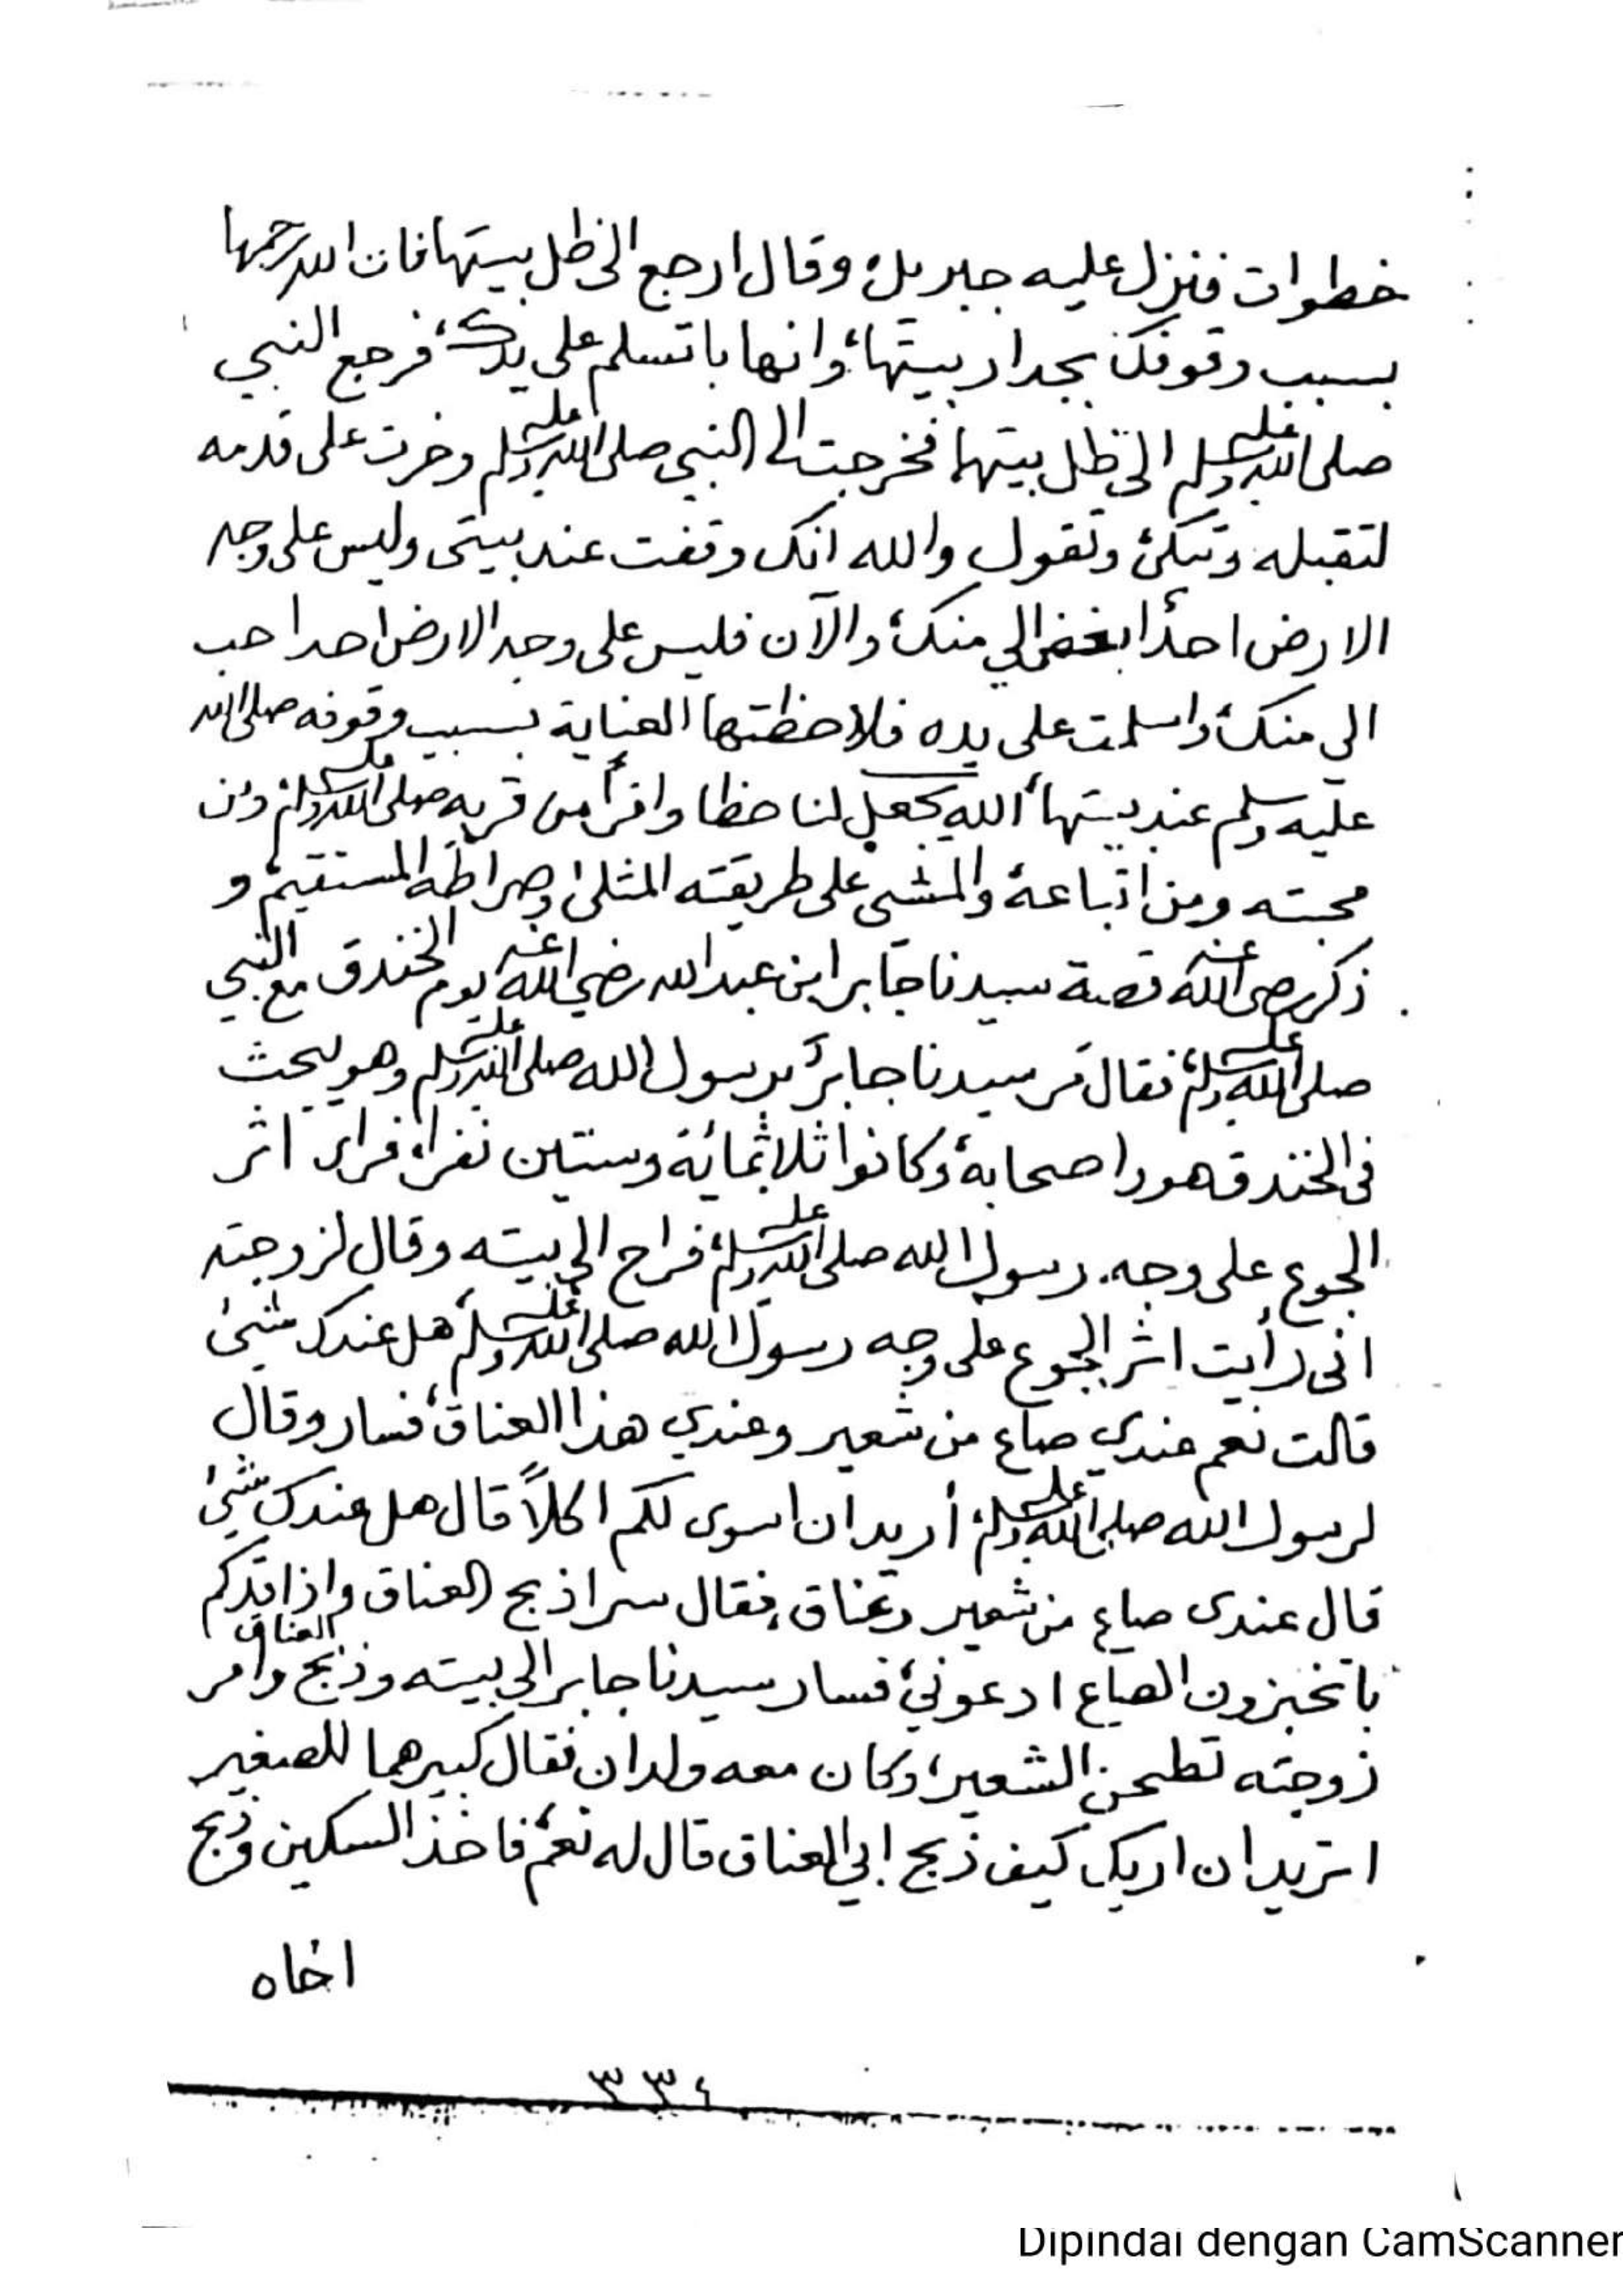 خطوات فنزل عليه جبريل، وقال ارجع الى ظل بيتها فان الله رحمها
بسبب وقوفك بجدار بيتها، وانها باتسلم على يدك، فرجع النبي
صلى الله عليه وسلم الى ظل بيتها فخرجت الى النبي صلى الله عليه وسلم وخرت على قدمه
لتقبله وتبكي وتقول والله انك وقفت عند بيتى وليس على وجه
الارض احدًا ابغض الي منك، والآن فليس على وجه الارض احدا حب
الى منك، واسلمت على يده فلاحظتها العناية بسبب وقوفه صلى الله
عليه وسلم عند بيتها، الله يجعل لنا حظا وافرًا من قربه صلى الله عليه وسلم ومن
محبته ومن اتباعه، والمشي على طريقته المثلى، وصراطه المستقيم، و
ذكر رضي الله عنه قصة سيدنا جابر ابن عبدالله رضي الله عنه يوم الخندق مع النبي
صلى الله عليه وسلم، فقال مر سيدنا جابر برسول الله صلى الله عليه وسلم وهو يبحث
فى الخندق هو واصحابه، وكانوا ثلاثمائة وستين نفرا، فراى اثر
الجوع على وجه رسول الله صلى الله عليه وسلم، فراح الى بيته وقال لزوجته
انى رأيت اثر الجوع على وجه رسول الله صلى الله عليه وسلم، هل عندك شيئ
قالت نعم عندي صاع من شعير وعندي هذا العناق، فسار وقال
لرسول الله صلى الله عليه وسلم، أريد ان اسوى لكم اكلاً قال هل عندك شيئ
قال عندى صاع من شعير وعناق، فقال سر اذبح العناق واذا
باتخبزون الصاع ادعوني، فسار سيدنا جابر الى بيته وذبح العناق وامر
زوجته تطحن الشعير، وكان معه ولدان فقال كبيرهما للصغير
اتريد ان اريك كيف ذبح ابي العناق قال له نعم، فاخذ السكين وذبح
اخاه
٣٣٤
Dipindai dengan CamScanner